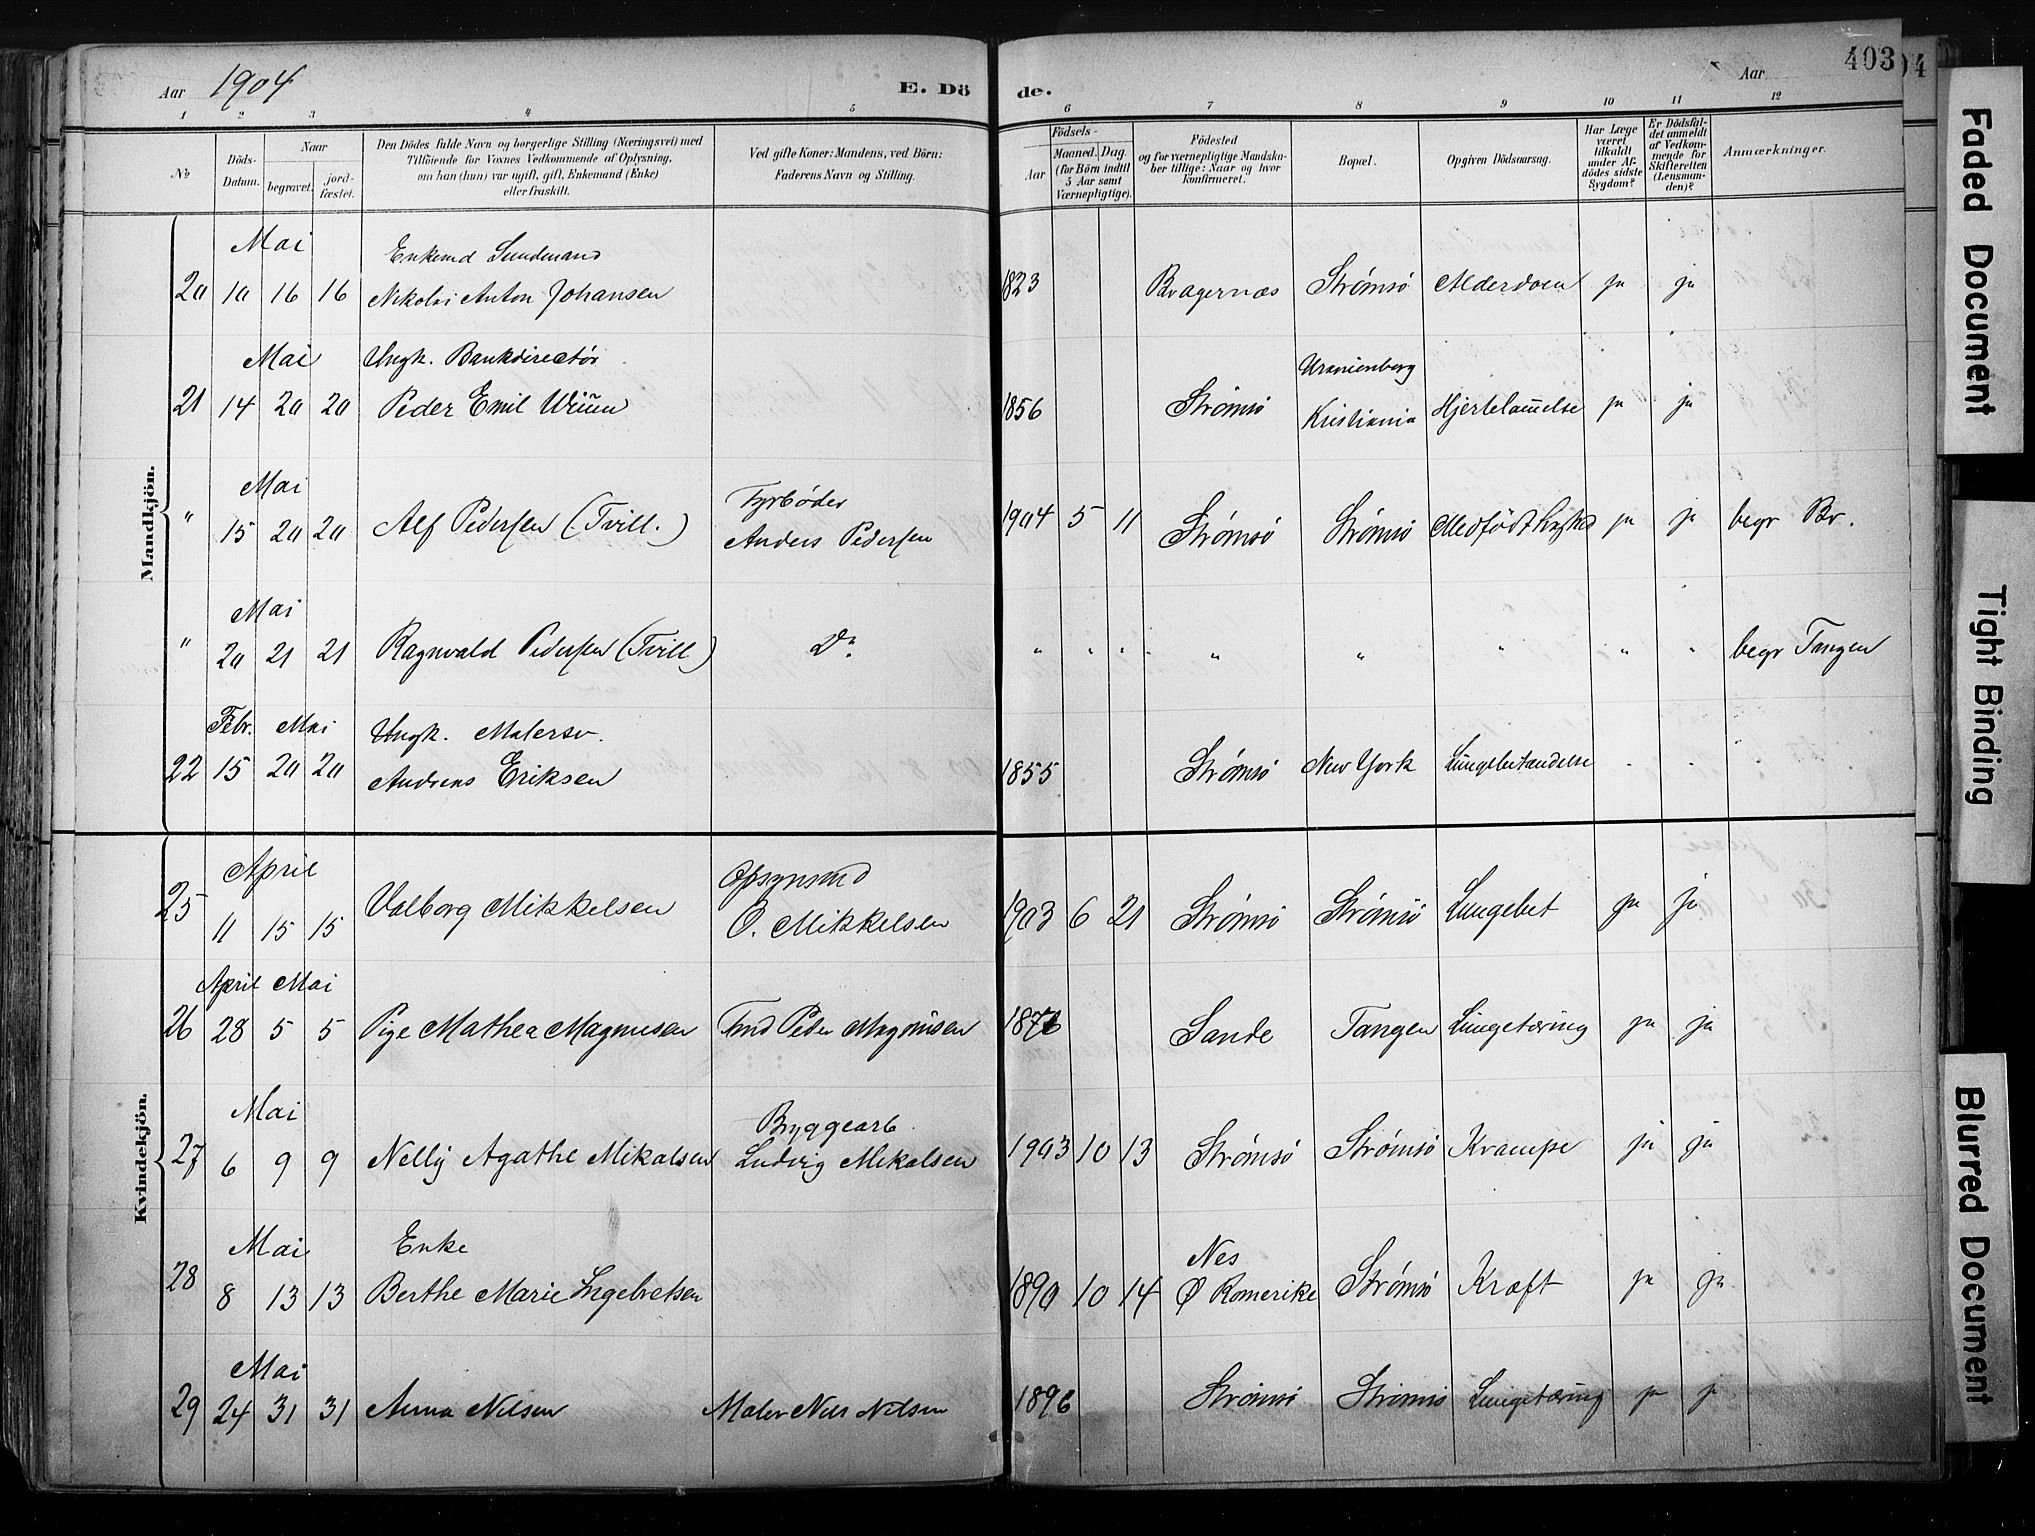 Aar 1904
E. Dö
de.
Aar
403
4
1 2 3 4 5 6 7 8 9 10 11 12
No
Döds-Datum.
Naar
begravet.
jord-fæstet.
Den Dödes fulde Navn og borgerlige Stilling (Næringsvei) med
Tilföiende for Voxnes Vedkommende af Oplysning,
om han (hun) var ugift, gift, Enkemand (Enke)
eller fraskilt.
Ved gifte Koner: Mandens, ved Börn:
Faderens Navn og Stilling.
Födsels-
Aar
Maaned. Dag.
(for Börn indtil
5 Aar samt
Værnepligtige).
Födested
og for værnepligtige Mandska-
ber tillige: Naar og hvor
konfirmeret.
Bopæl.
Opgiven Dödsaarsag.
Har Læge
været
tilkaldt
under Af-
dödes sidste
Sygdom?
Er Dödsfal-
det anmeldt
af Vedkom-
mende for
Skifteretten
(Lensman-
den)?
Anmærkninger.
Mandkjön.
Mai Enkemd
20 10 16 16 Nikolai Anton Johansen 1823 Bragernæs Strømsö Alderdom ja ja
Mai Ungk. Bankdirectör Uranienborg
21 14 20 20 Peder Emil 1856 Strømsö Kristiania Hjertelammelse ja ja
Mai Fyrbøder
" 15 20 20 Alf Pedersen (Tvill.) Anders Pedersen 1904 5 11 Strømsö Strømsö ja ja begr Br.
Mai
" 20 21 21 Ragnvald Pedersen (Tvill) Do " " " " " " " " begr Tangen
Febr. Mai Ungk. Malersv.
22 15 20 20 Andreas Eriksen 1855 Strømsö New York Lungebetændelse
Kvindekjön.
April Opsynsmd
25 11 15 15 Valborg Mikkelsen O. Mikkelsen 1903 6 21 Strømsö Strømsö Lungebet ja ja
April Mai
26 28 5 5 Pige Mathea Magnusen Peder Magnusen Sande Tangen Lungetæring ja ja
Mai Bryggearb.
27 6 9 9 Nelly Agathe Mikalsen Ludvig Mikalsen 1903 10 13 Strømsö Strømsö Krampe ja ja
Mai Enke Nes
28 8 13 13 Berthe Marie Ingebretsen 1890 10 14 Ø Romerike Strømsö Kræft ja ja
Mai
29 24 31 31 Anna Nilsen Maler Nils Nilsen 1896 Strømsö Strømsö Lungetæring ja ja
Faded Document
Tight Binding
Blurred Document